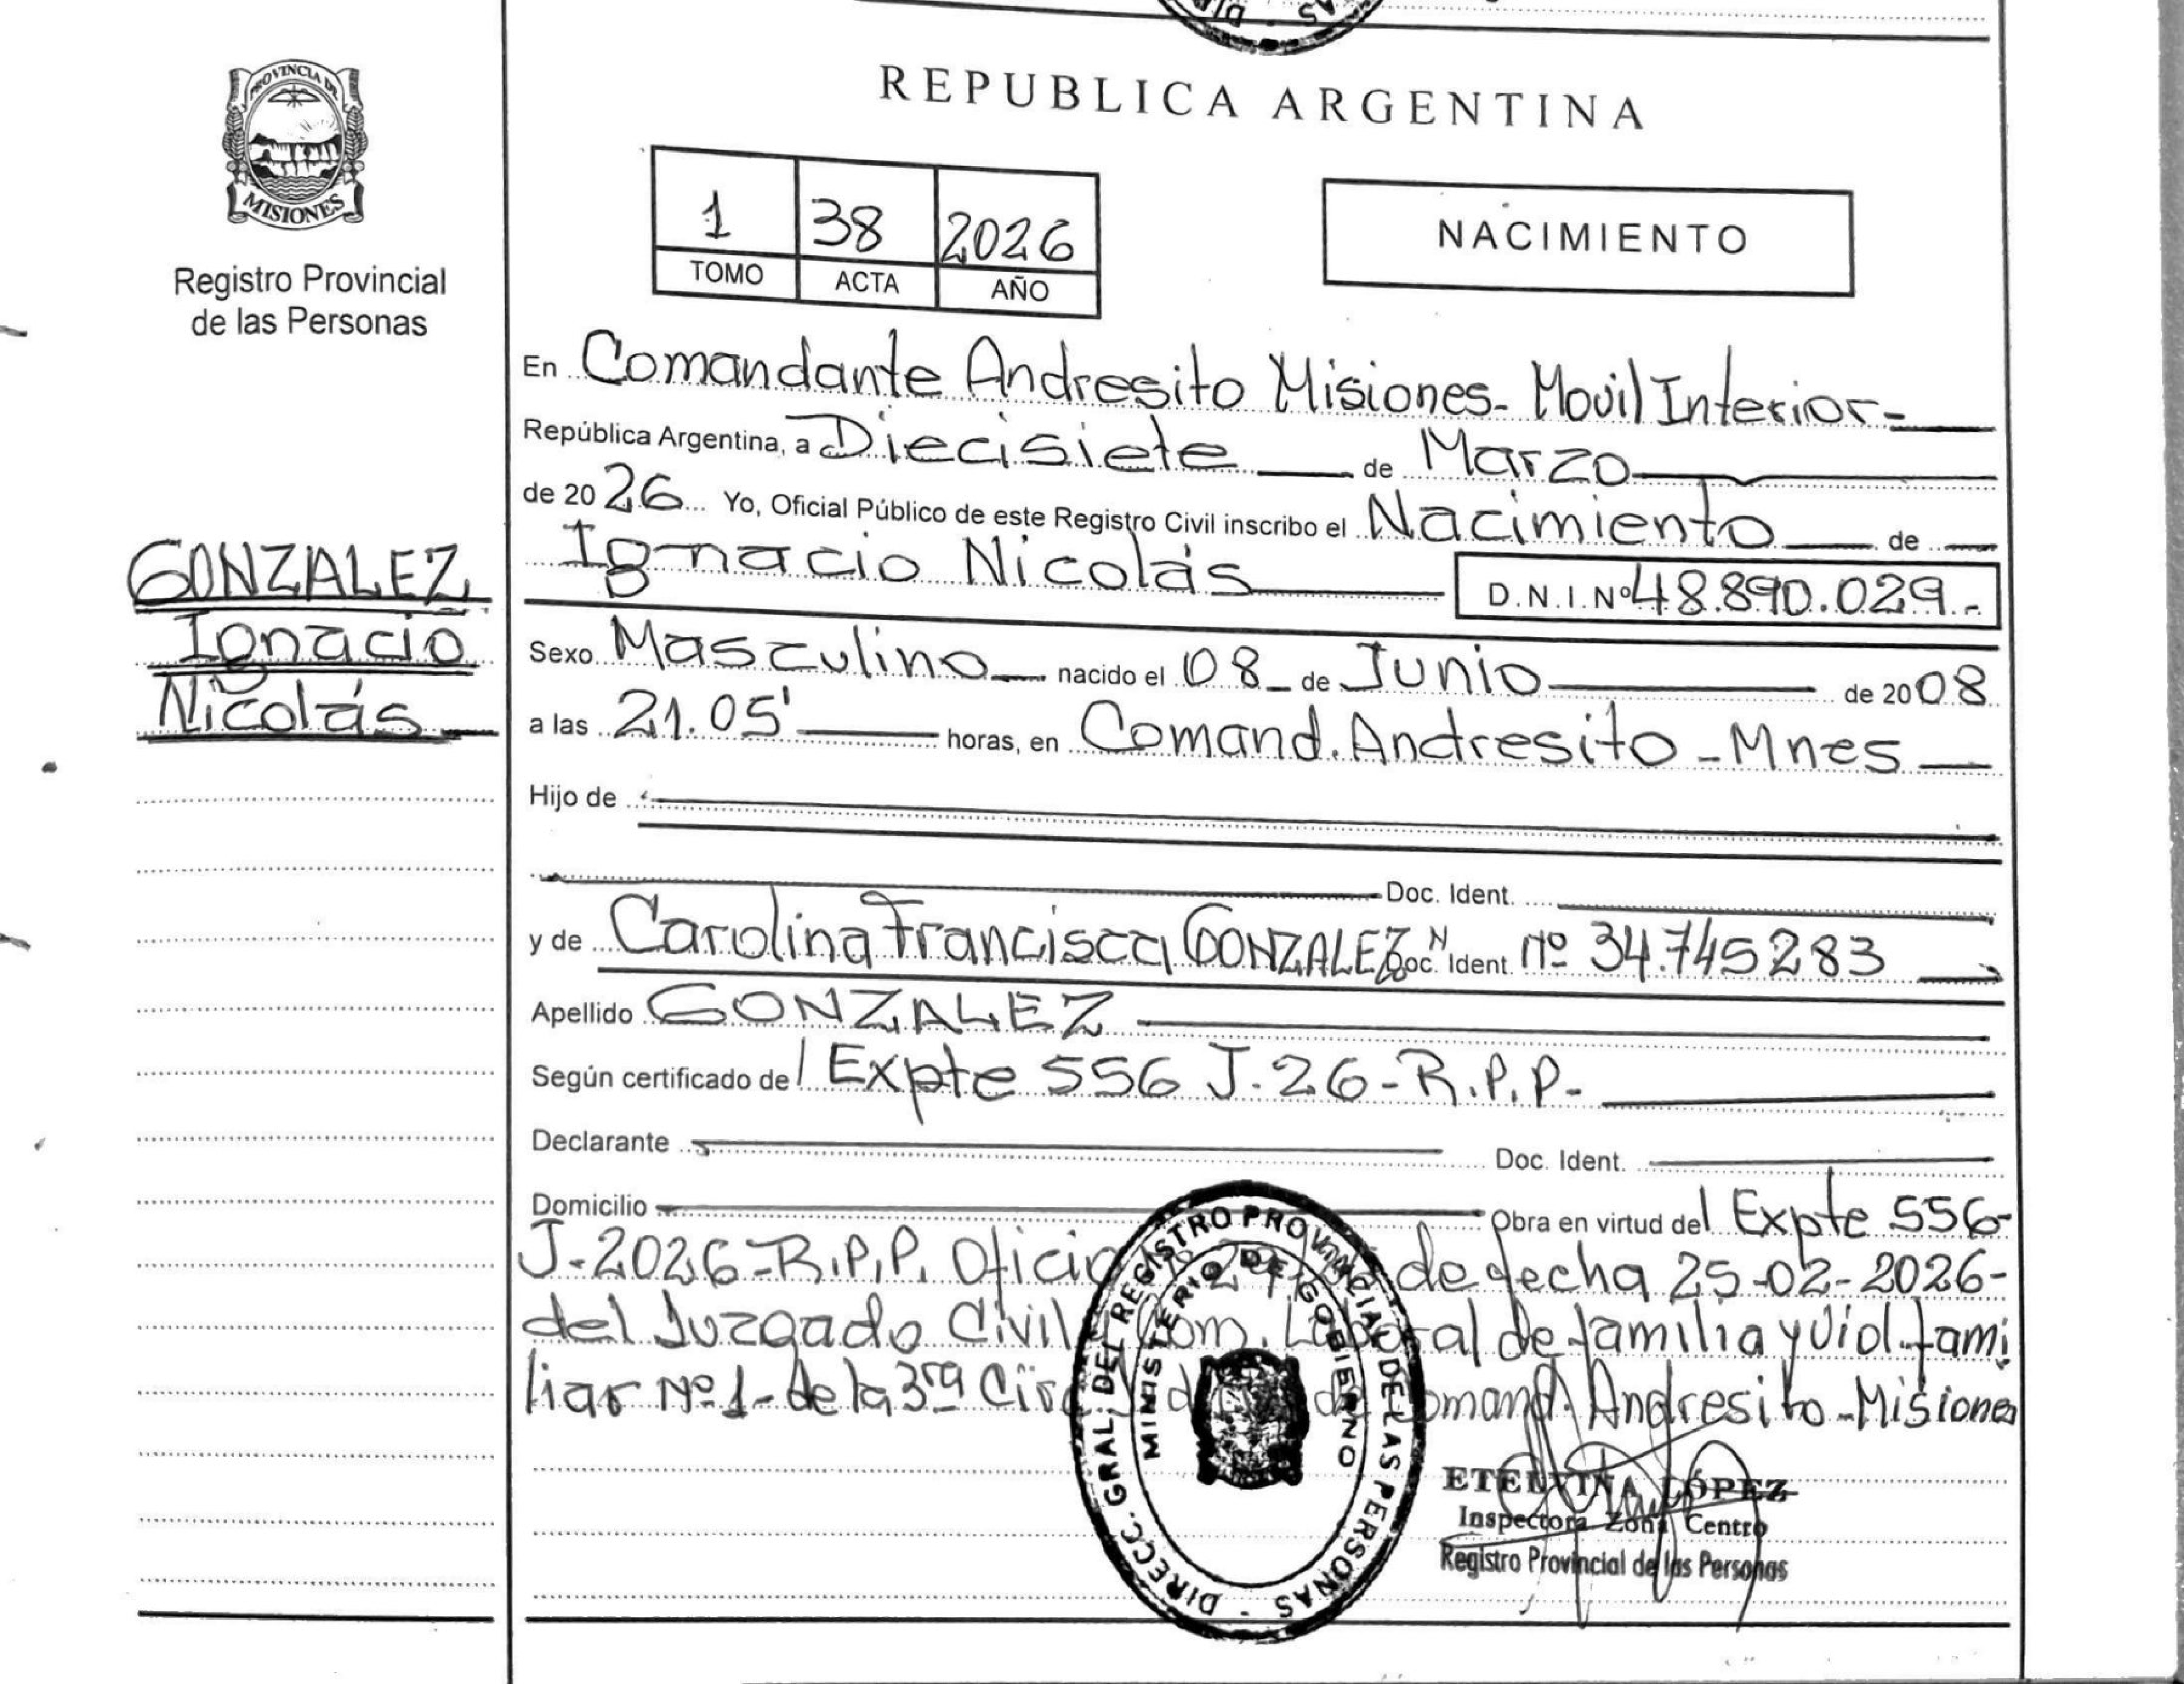 REPUBLICA ARGENTINA
PROVINCIA DE
MISIONES
Registro Provincial
de las Personas
1 38 2026
TOMO ACTA AÑO
NACIMIENTO
En Comandante Andresito Misiones- Movil Interior-
República Argentina, a Diecisiete de Marzo
de 20 26 Yo, Oficial Público de este Registro Civil inscribo el Nacimiento de
Ignacio Nicolás D.N.I.Nº 48.890.029.-
GONZALEZ
Ignacio
Nicolás
Sexo Masculino nacido el 08 de Junio de 20 08
a las 21.05' horas, en Comand. Andresito - Mnes
Hijo de
Doc. Ident.
y de Carolina Francisca GONZALEZ Doc. Ident. Nº 34.745283
Apellido GONZALEZ
Según certificado del Expte 556 J-26-R.P.P-
Declarante Doc. Ident.
Domicilio Obra en virtud del Expte 556-
J-2026-R.P.P. Oficio de fecha 25-02-2026-
del Juzgado Civil Com. Laboral de familia y Viol. fami
liar Nº 1- de la 3ra Comand. Andresito-Misiones
DIRECC. GRAL. DEL REGISTRO PROVINCIAL DE LAS PERSONAS
MINISTERIO DE GOBIERNO
ETELVINA LÓPEZ
Inspectora Zona Centro
Registro Provincial de las Personas